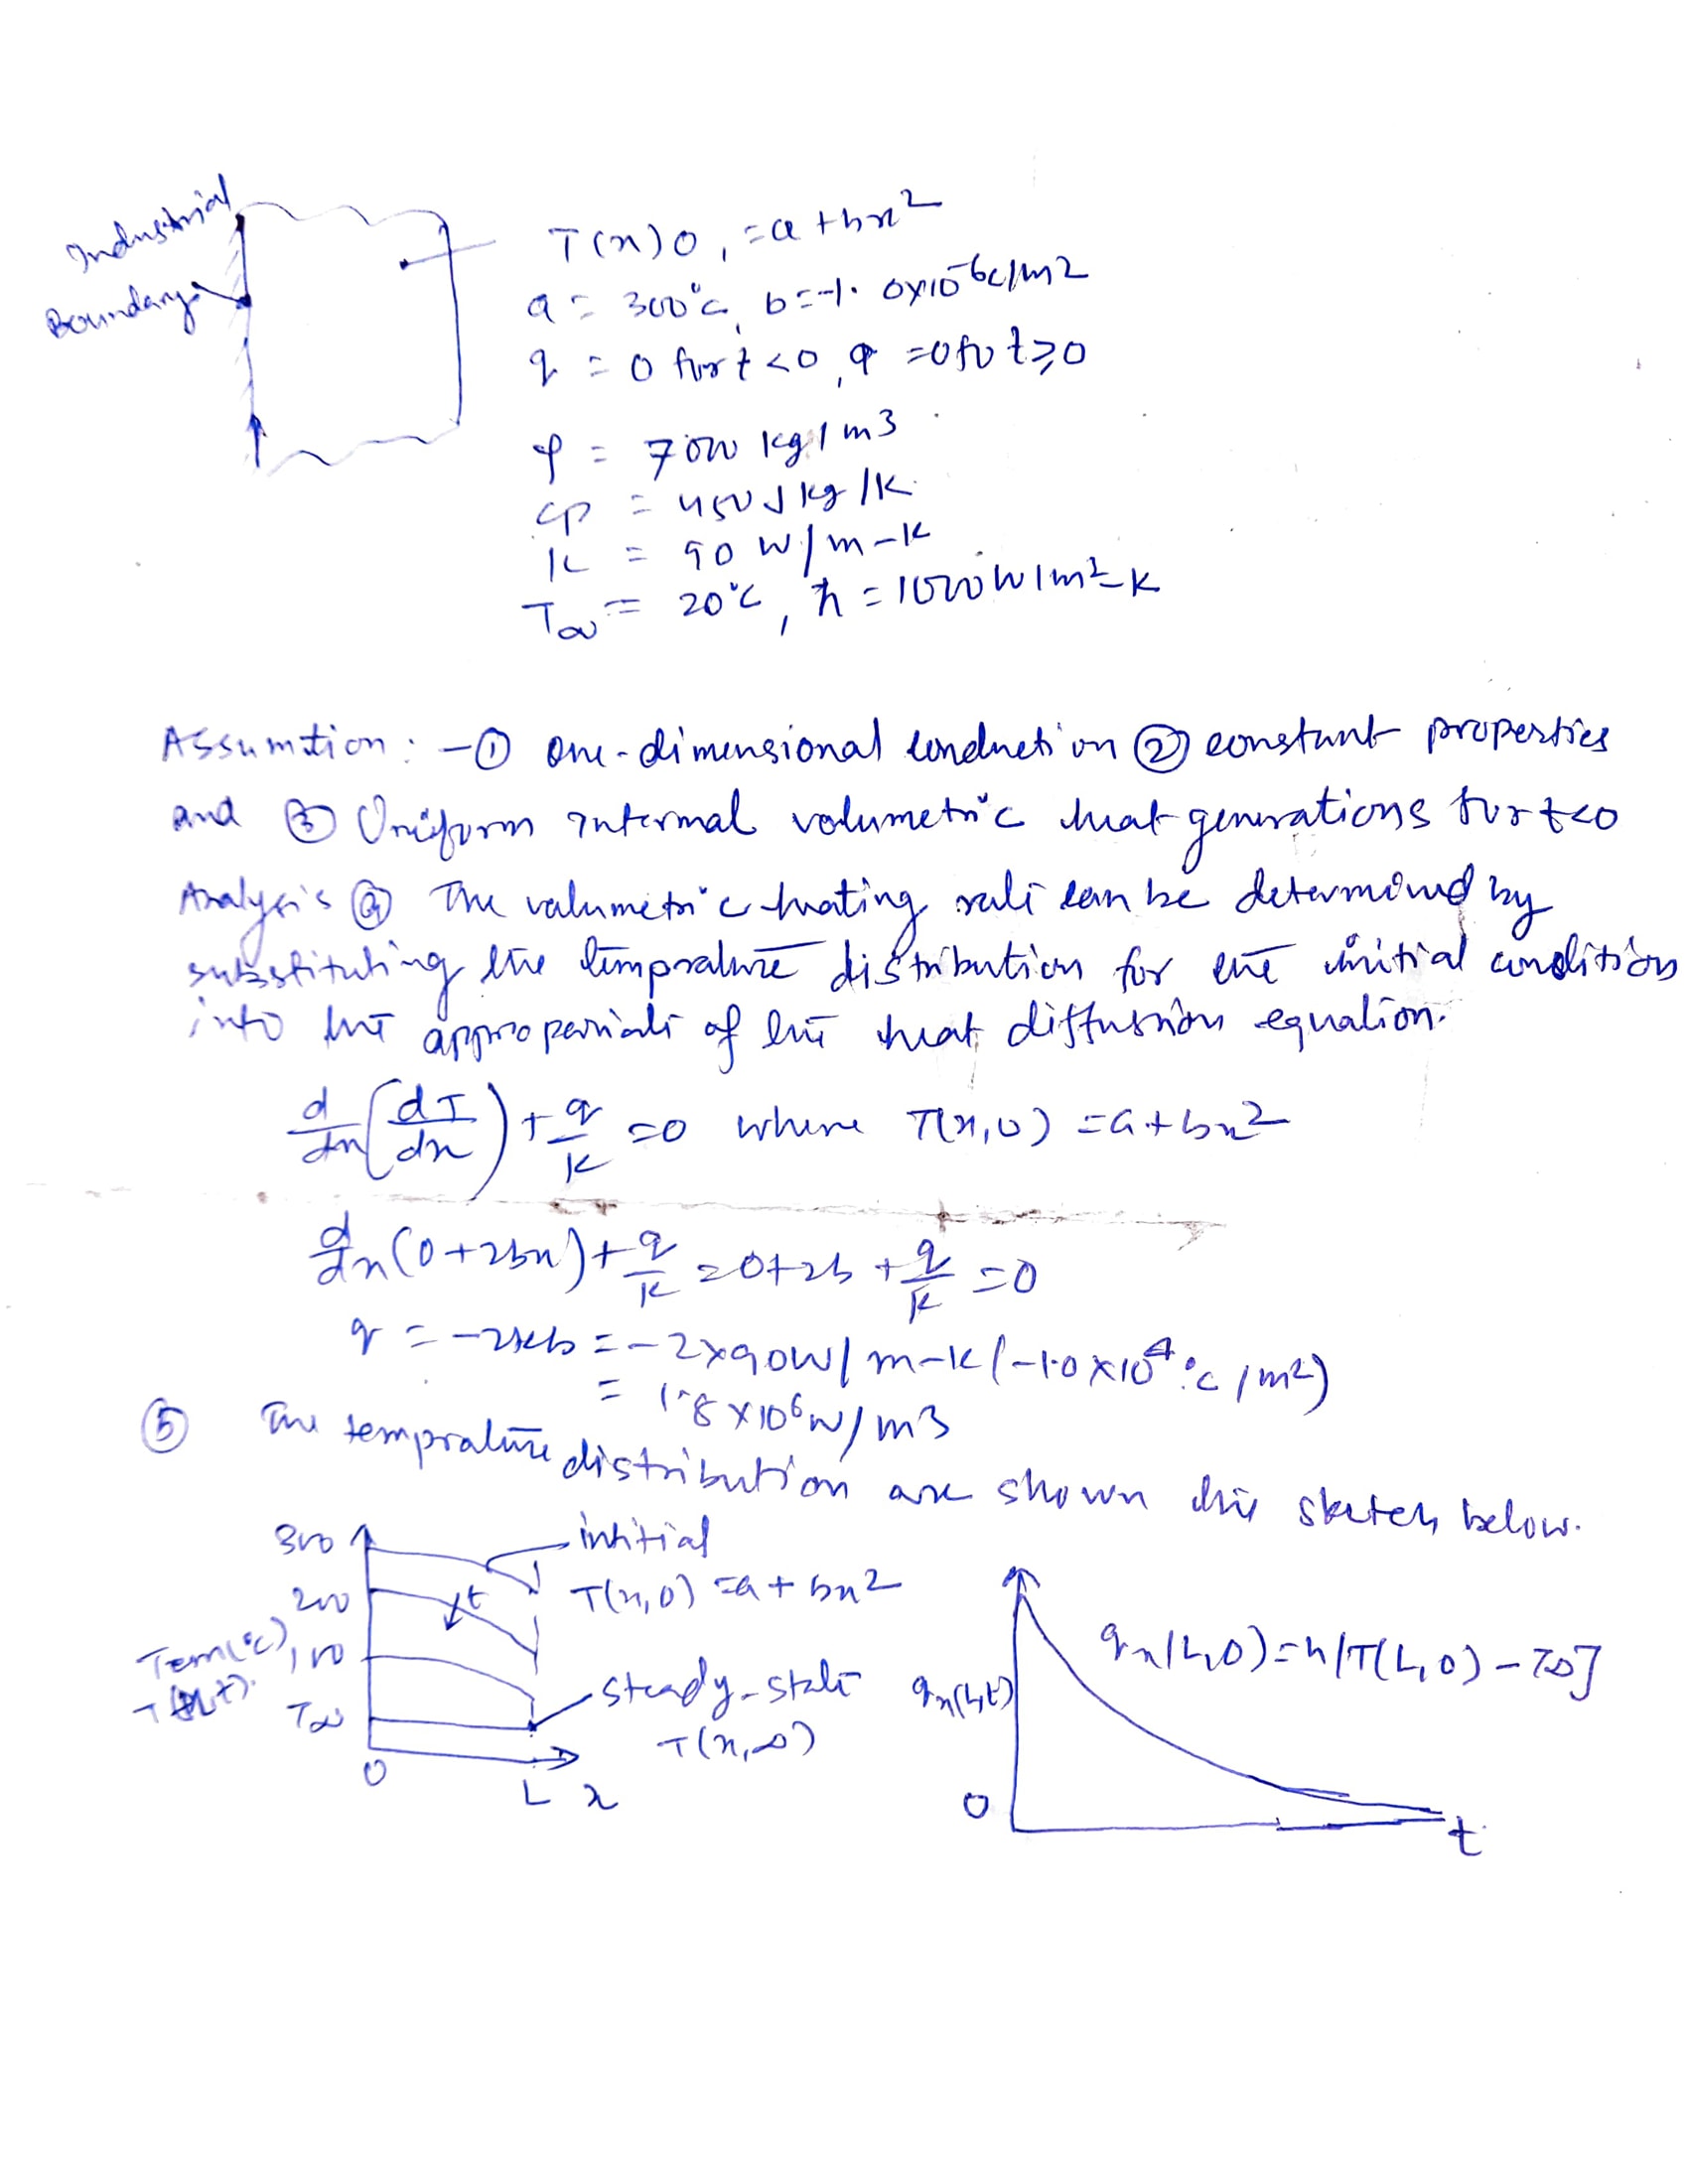 Industrial
Boundary
T(x)0, = a + bx²
a = 300°c, b = -1.0x10⁻⁶c/m2
q = 0 for t < 0, q = 0 for t ⩾ 0
ρ = 7000 kg/m3
cp = 450 J kg/K
K = 90 W/m-K
T∞ = 20°c, h = 1000 W/m²-K
Assumtion: - ① one-dimensional conduction ② constant properties
and ③ Uniform internal volumetric heat generations for t<0
Analysis ⓐ The valumetric heating rate can be determined by
substituting the temprature distribution for the initial condition
into the of the heat diffusion equation.
d/dx (dT/dx) + q/k = 0 where T(x,0) = a + bx²
d/dx (0 + 2bx) + q/k = 0 + 2b + q/k = 0
q = -2kb = -2x90W/m-K (-1.0x10⁴ °c/m²)
= 1.8x10⁶ W/m3
⑤ The temprature distribution are shown this sketch below.
300
200
100
T∞
Tem(°c)
0
L x
t
intitial
T(x,0) = a + bx²
steady-state
T(x,∞)
qx(L,t)
0
qx(L,0) = h/T(L,0) - T∞]
t